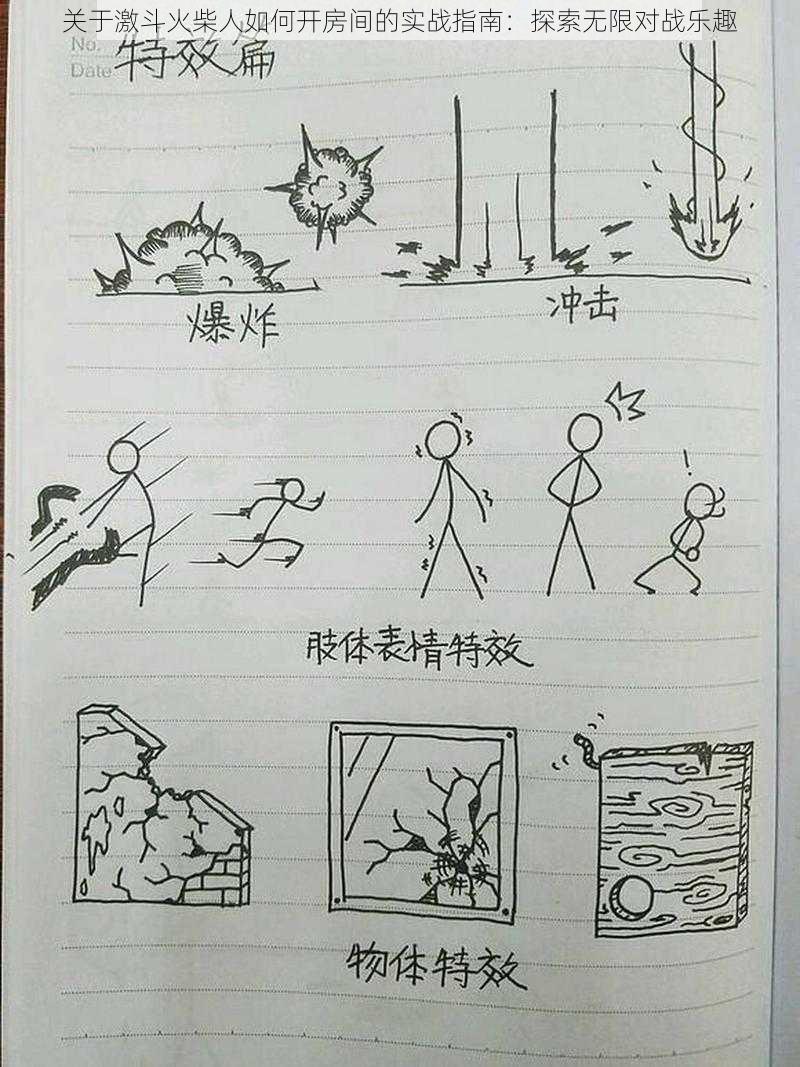 关于激斗火柴人如何开房间的实战指南：探索无限对战乐趣
No.
Date
特效篇
爆炸
冲击
!
肢体表情特效
物体特效